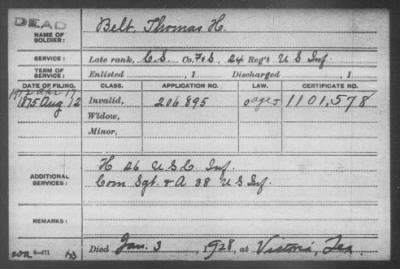 DEAD
NAME OF SOLDIER: Belt, Thomas H.
SERVICE: Late rank, C.S. Co. F&S, 24 Reg't U S Inf
TERM OF SERVICE: Enlisted , 1 Discharged , 1
DATE OF FILING. CLASS. APPLICATION NO. LAW. CERTIFICATE NO.
1875 Aug 12 Invalid, 206895 1101,578
Widow,
Minor,
ADDITIONAL SERVICES: H 26 U.S.C. Inf.
Com Sgt. & A 38 U S Inf.
REMARKS:
Died Jan. 3, 1928, at Victoria, Tex